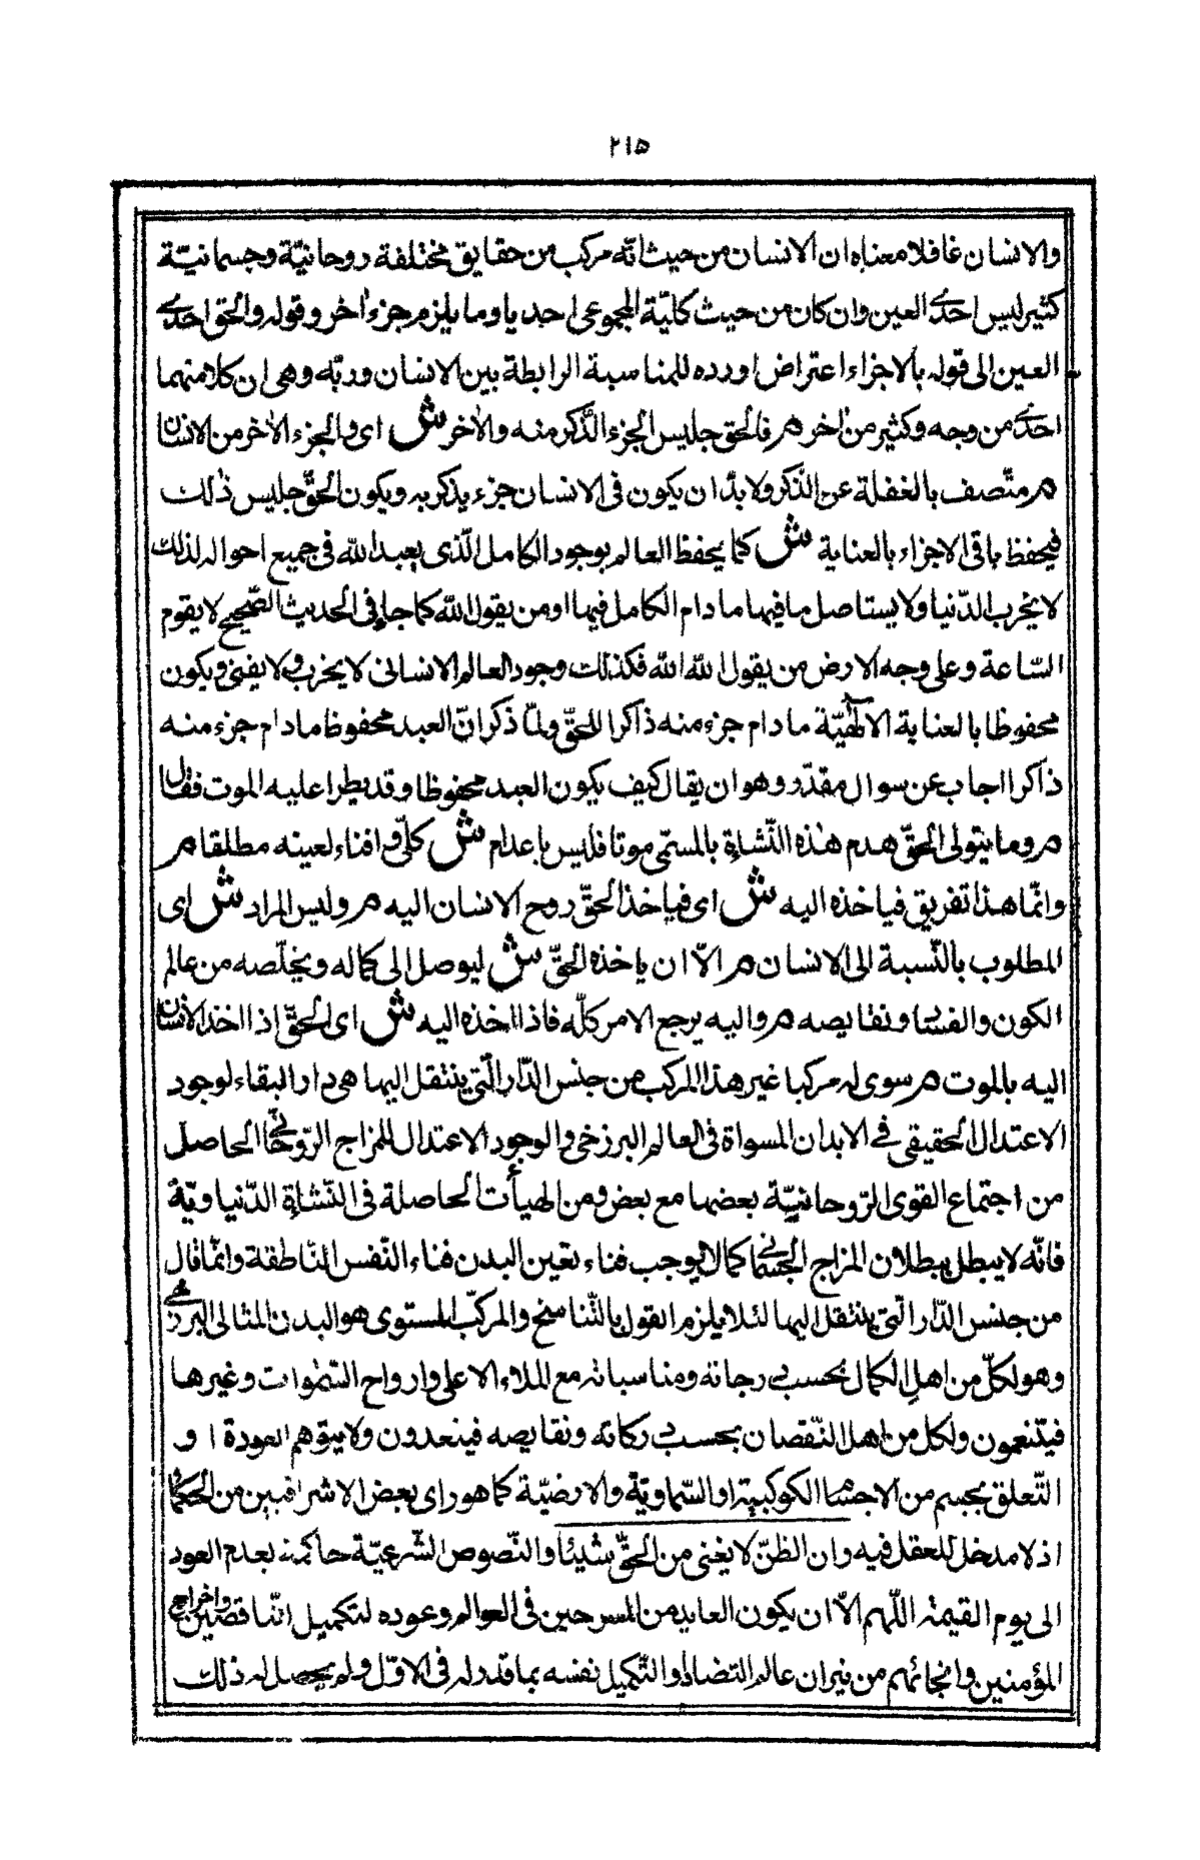 ٢١۵
والانسان غافلا معناه ان الانسان من حيث انّه مركب من حقايق مختلفة روحانيّة وجسمانيّة
كثير ليس احدىّ العين وان كان من حيث كليّة المجموعى احديا وما يلزم جزء اٰخر وقوله والحق احدىّ
العين الى قوله بالاجزاء اعتراض اورده للمناسبة الرابطة بين الانسان وربّه وهى ان كلا منهما
احدىّ من وجه وكثير من اٰخر م فالحق جليس الجزء الذّاكر منه والاٰخر ش اى والجزء الاٰخر من الانسان
م متّصف بالغفلة عن الذّكر ولا بدّ ان يكون فى الانسان جزء يذكر به ويكون الحقّ جليس ذٰلك
فيحفظ باقى الاجزاء بالعناية ش كما يحفظ العالم بوجود الكامل الّذى يعبد الله فى جميع احواله لذلك
لا يخرب الدّنيا ولا يستاصل ما فيها ما دام الكامل فيها او من يقول الله كما جاء فى الحديث الصّحيح لا يقوم
السّاعة وعلى وجه الارض من يقول الله الله فكذلك وجود العالم الانسانى لا يخرب ولا يفنى ويكون
محفوظا بالعناية الالهٰيّة ما دام جزء منه ذاكرا للحقّ ولمّا ذكر انّ العبد محفوظ ما دام جزء منه
ذاكرا اجاب عن سوال مقدّر وهو ان يقال كيف يكون العبد محفوظا وقد يطرا عليه الموت فقال
م وما يتولى الحقّ هدم هٰذه النّشاة بالمسمّى موتا فليس باعدام ش كلّى وافناء لعينه مطلقا م
وانّما هذا تفريق فياخذه اليه ش اى فياخذ الحقّ روح الانسان اليه م وليس المراد ش اى
المطلوب بالنّسبة الى الانسان م الّا ان ياخذه الحقّ ش ليوصل الى كماله ويخلّصه من عالم
الكون والفساد ونقايصه م واليه يرجع الامر كلّه فاذا اخذه اليه ش اى الحقّ اذا اخذ الانسان
اليه بالموت م سوى له مركبا غير هذا المركب من جنس الدّار الّتى ينتقل اليها هى دار البقاء لوجود
الاعتدال الحقيقى فى الابدان المسواة فى العالم البرزخى والوجود الاعتدال للمزاج الرّوحانى الحاصل
من اجتماع القوى الرّوحانيّة بعضها مع بعض ومن الهيأت الحاصلة فى النّشاة الدّنياويّة
فانّه لا يبطل ببطلان المزاج الجسمانى كما لا يوجب فناء تعين البدن فناء النّفس النّاطقة وانّما قال
من جنس الدّار الّتى ينتقل اليها لئلا يلزم القول بالتّناسخ والمركّب المستوى هو البدن المثالى البرزخى
وهو لكلّ من اهل الكمال بحسب درجاته ومناسباته مع الملاء الاعلى وارواح السّمٰوات وغيرها
فيتنعمون ولكل من اهل النّقصان بحسب دركاته ونقايصه فينعدون ولا يتوّهم العودة او
التّعلق بجسم من الاجسام الكوكبية او السّماويّة والارضيّة كما هو راى بعض الاشراقيين من الحكما
اذ لا مدخل للعقل فيه وان الظنّ لا يغنى من الحقّ شيئا والنّصوص الشّرعيّة حاكمة بعدم العود
الى يوم القيمة اللّهم الّا ان يكون العابد من المسرحين فى العوالم وعوده لتكميل النّاقصين واخراج
المؤمنين وانجائهم من نيران عالم التضاد والتّكميل نفسه بما قدر له فى الاوّل ولم يحصل له ذلك